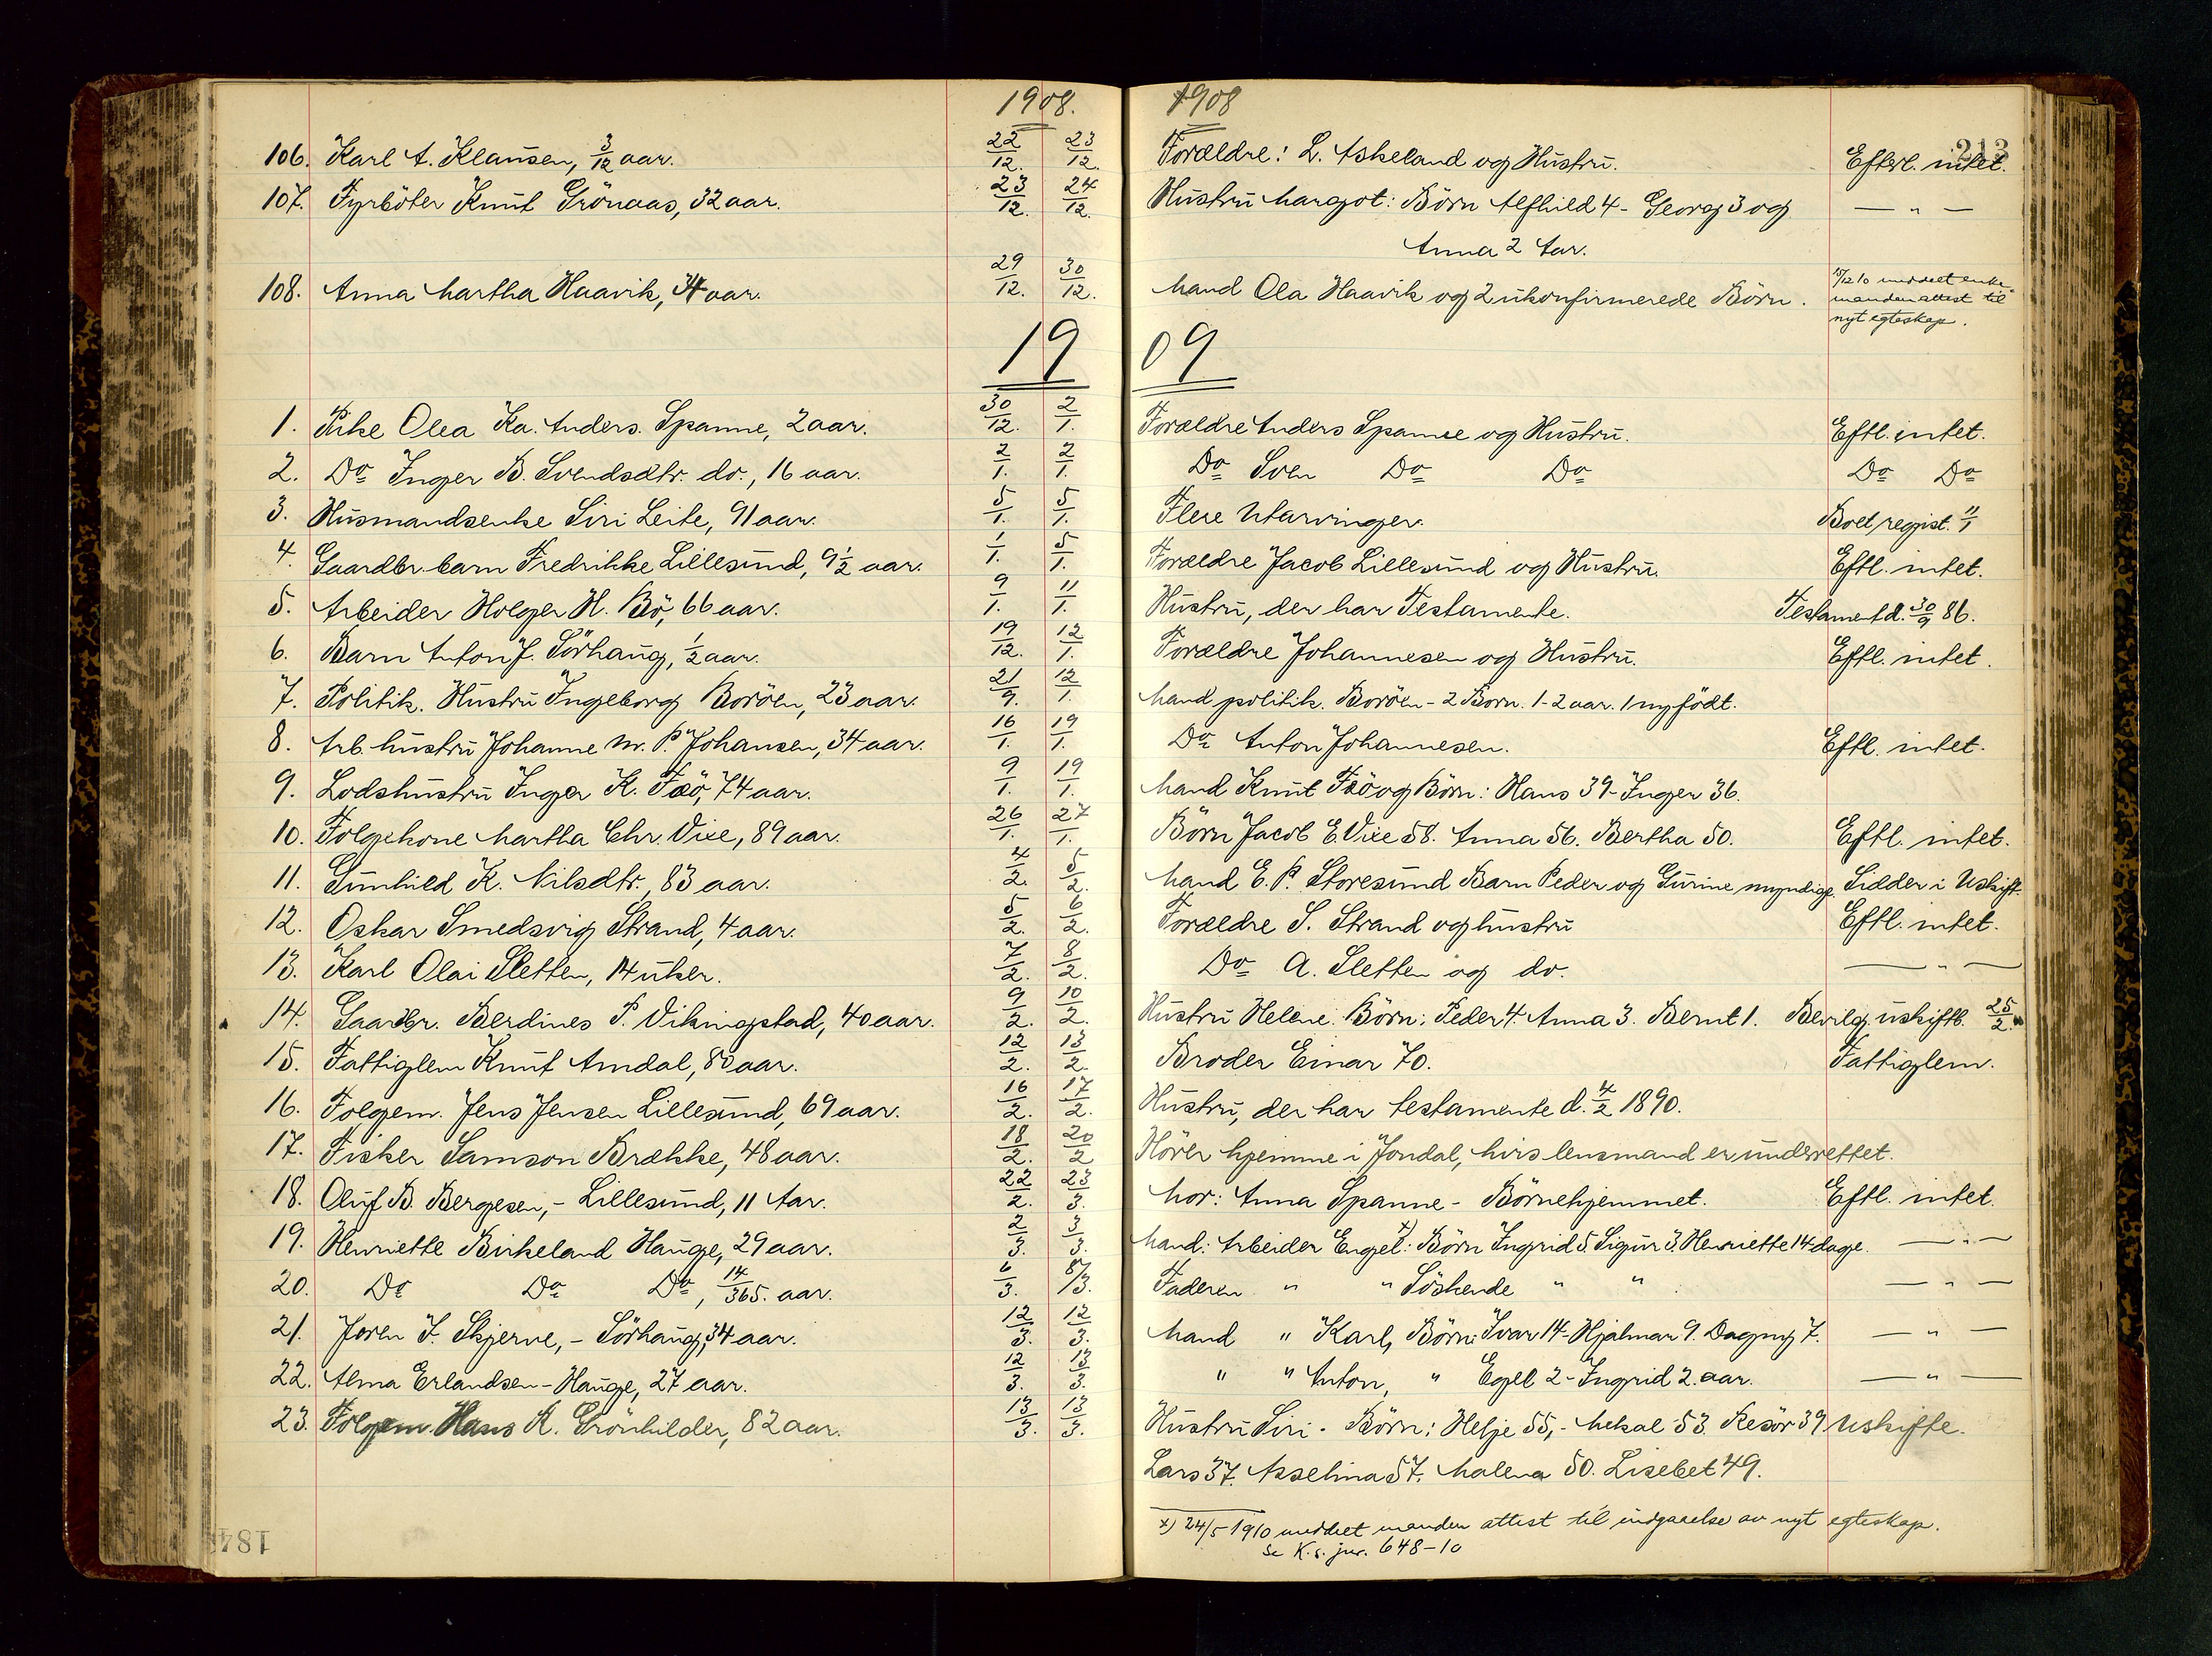 1908. 1908
213
106. Karl A. Klausen, 3/12 aar. 22/12. 23/12. Forældre: L. Askeland og Hustru. Efterl. intet.
107. Fyrböter Knut Grönaas, 32 aar. 23/12. 24/12. Hustru Margot: Börn Alfhild 4 - Georg 3 og — " —
Anna 2 Aar.
108. Anna Martha Haavik, 34 aar. 29/12. 30/12. Mand Ola Haavik og 2 ukonfirmerede Börn. 15/12 10 meddelt enke-
manden attest til
nyt egteskap.
19 09
1. Pike Olea Ka. Anders. Spanne, 2 aar. 30/12. 2/1. Forældre Anders Spanne og Hustru. Eftl. intet.
2. Do Inger B. Svendsdtr. do., 16 aar. 2/1. 2/1. Do Sven Do Do Do Do
3. Husmandsenke Siri Leite, 91 aar. 5/1. 5/1. Flere Utarvinger. Boet regist. 11/1
4. Gaardbr. barn Fredrikke Lillesund, 9 1/2 aar. 1/1. 5/1. Forældre Jacob Lillesund og Hustru. Eftl. intet.
5. Arbeider Holger H. Bö, 66 aar. 9/1. 11/1. Hustru, der har Testamente. Testament d. 30/9 86.
6. Barn Anton J. Sörhaug, 1/2 aar. 19/12. 12/1. Forældre Johannesen og Hustru. Eftl. intet.
7. Politik. Hustru Ingeborg Boröen, 23 aar. 21/9. 12/1. Mand politik. Boröen - 2 Born. 1 - 2 aar. 1 nyfödt.
8. Arb. hustru Johanne M. P. Johansen, 34 aar. 16/1. 19/1. Do Anton Johannesen. Eftl. intet.
9. Lodshustru Inger K. Fæö, 74 aar. 9/1. 19/1. Mand Knut Fæö og Börn: Hans 39 - Inger 36.
10. Folgekone Martha Chr. Vixe, 89 aar. 26/1. 27/1. Börn Jacob E. Vixe 58. Anna 56. Bertha 50. Eftl. intet.
11. Gunhild K. Nilsdtr. 83 aar. 4/2. 5/2. Mand E. P. Storesund Barn Peder og Gurine myndige. Sidder i Uskift.
12. Oskar Smedsvig Strand, 4 aar. 5/2. 6/2. Forældre S. Strand og hustru Eftl. intet.
13. Karl Olai Sletten, 14 uker. 7/2. 8/2. Do A. Sletten og do. — " —
14. Gaardbr. Berdines P. Vikingstad, 40 aar. 9/2. 10/2. Hustru Helene. Börn: Peder 4. Anna 3. Bernt 1. Bevilg. uskifte. 25/2.
15. Fattiglem Knut Amdal, 80 aar. 12/2. 13/2. Broder Einar 70. Fattiglem.
16. Folgem. Jens Jensen Lillesund, 69 aar. 16/2. 17/2. Hustru, der har testamente d. 4/2 1890.
17. Fisker Samson Brække, 48 aar. 18/2. 20/2 Hörer hjemme i Jondal, hvis lensmand er underrettet.
18. Oluf B. Bergesen, - Lillesund, 11 Aar. 22/2. 23/3. Mor: Anna Spanne - Börnehjemmet. Eftl. intet.
19. Henriette Birkeland Hauge, 29 aar. 2/3. 3/3. Mand: Arbeider Engel: x) Börn Ingrid 5. Sigur 3. Henriette 14 dage. — " —
20. Do Do Do, 14/365. aar. 6/3. 8/3. Faderen " " Söskende " " — " —
21. Joren J. Skjerve, - Sörhaug, 34 aar. 12/3. 12/3. Mand " Karl, Börn: Ivar 14 - Hjalmar 9. Dagny 7. — " —
22. Alma Erlandsen - Hauge, 27 aar. 12/3. 13/3. " " Anton, " Egel 2 - Ingrid 2. aar. — " —
23. Folgem. Hans A. Grönhilder, 82 aar. 13/3. 13/3. Hustru Siri - Börn: Helje 55, - Mekal 53. Resör 39 Uskifte.
Lars 37. Asselina 57. Malena 50. Lisebet 49.
x) 24/5 1910 meddelt manden attest til indgaaelse av nyt egteskap.
Se K.s. jnr. 648-10
184